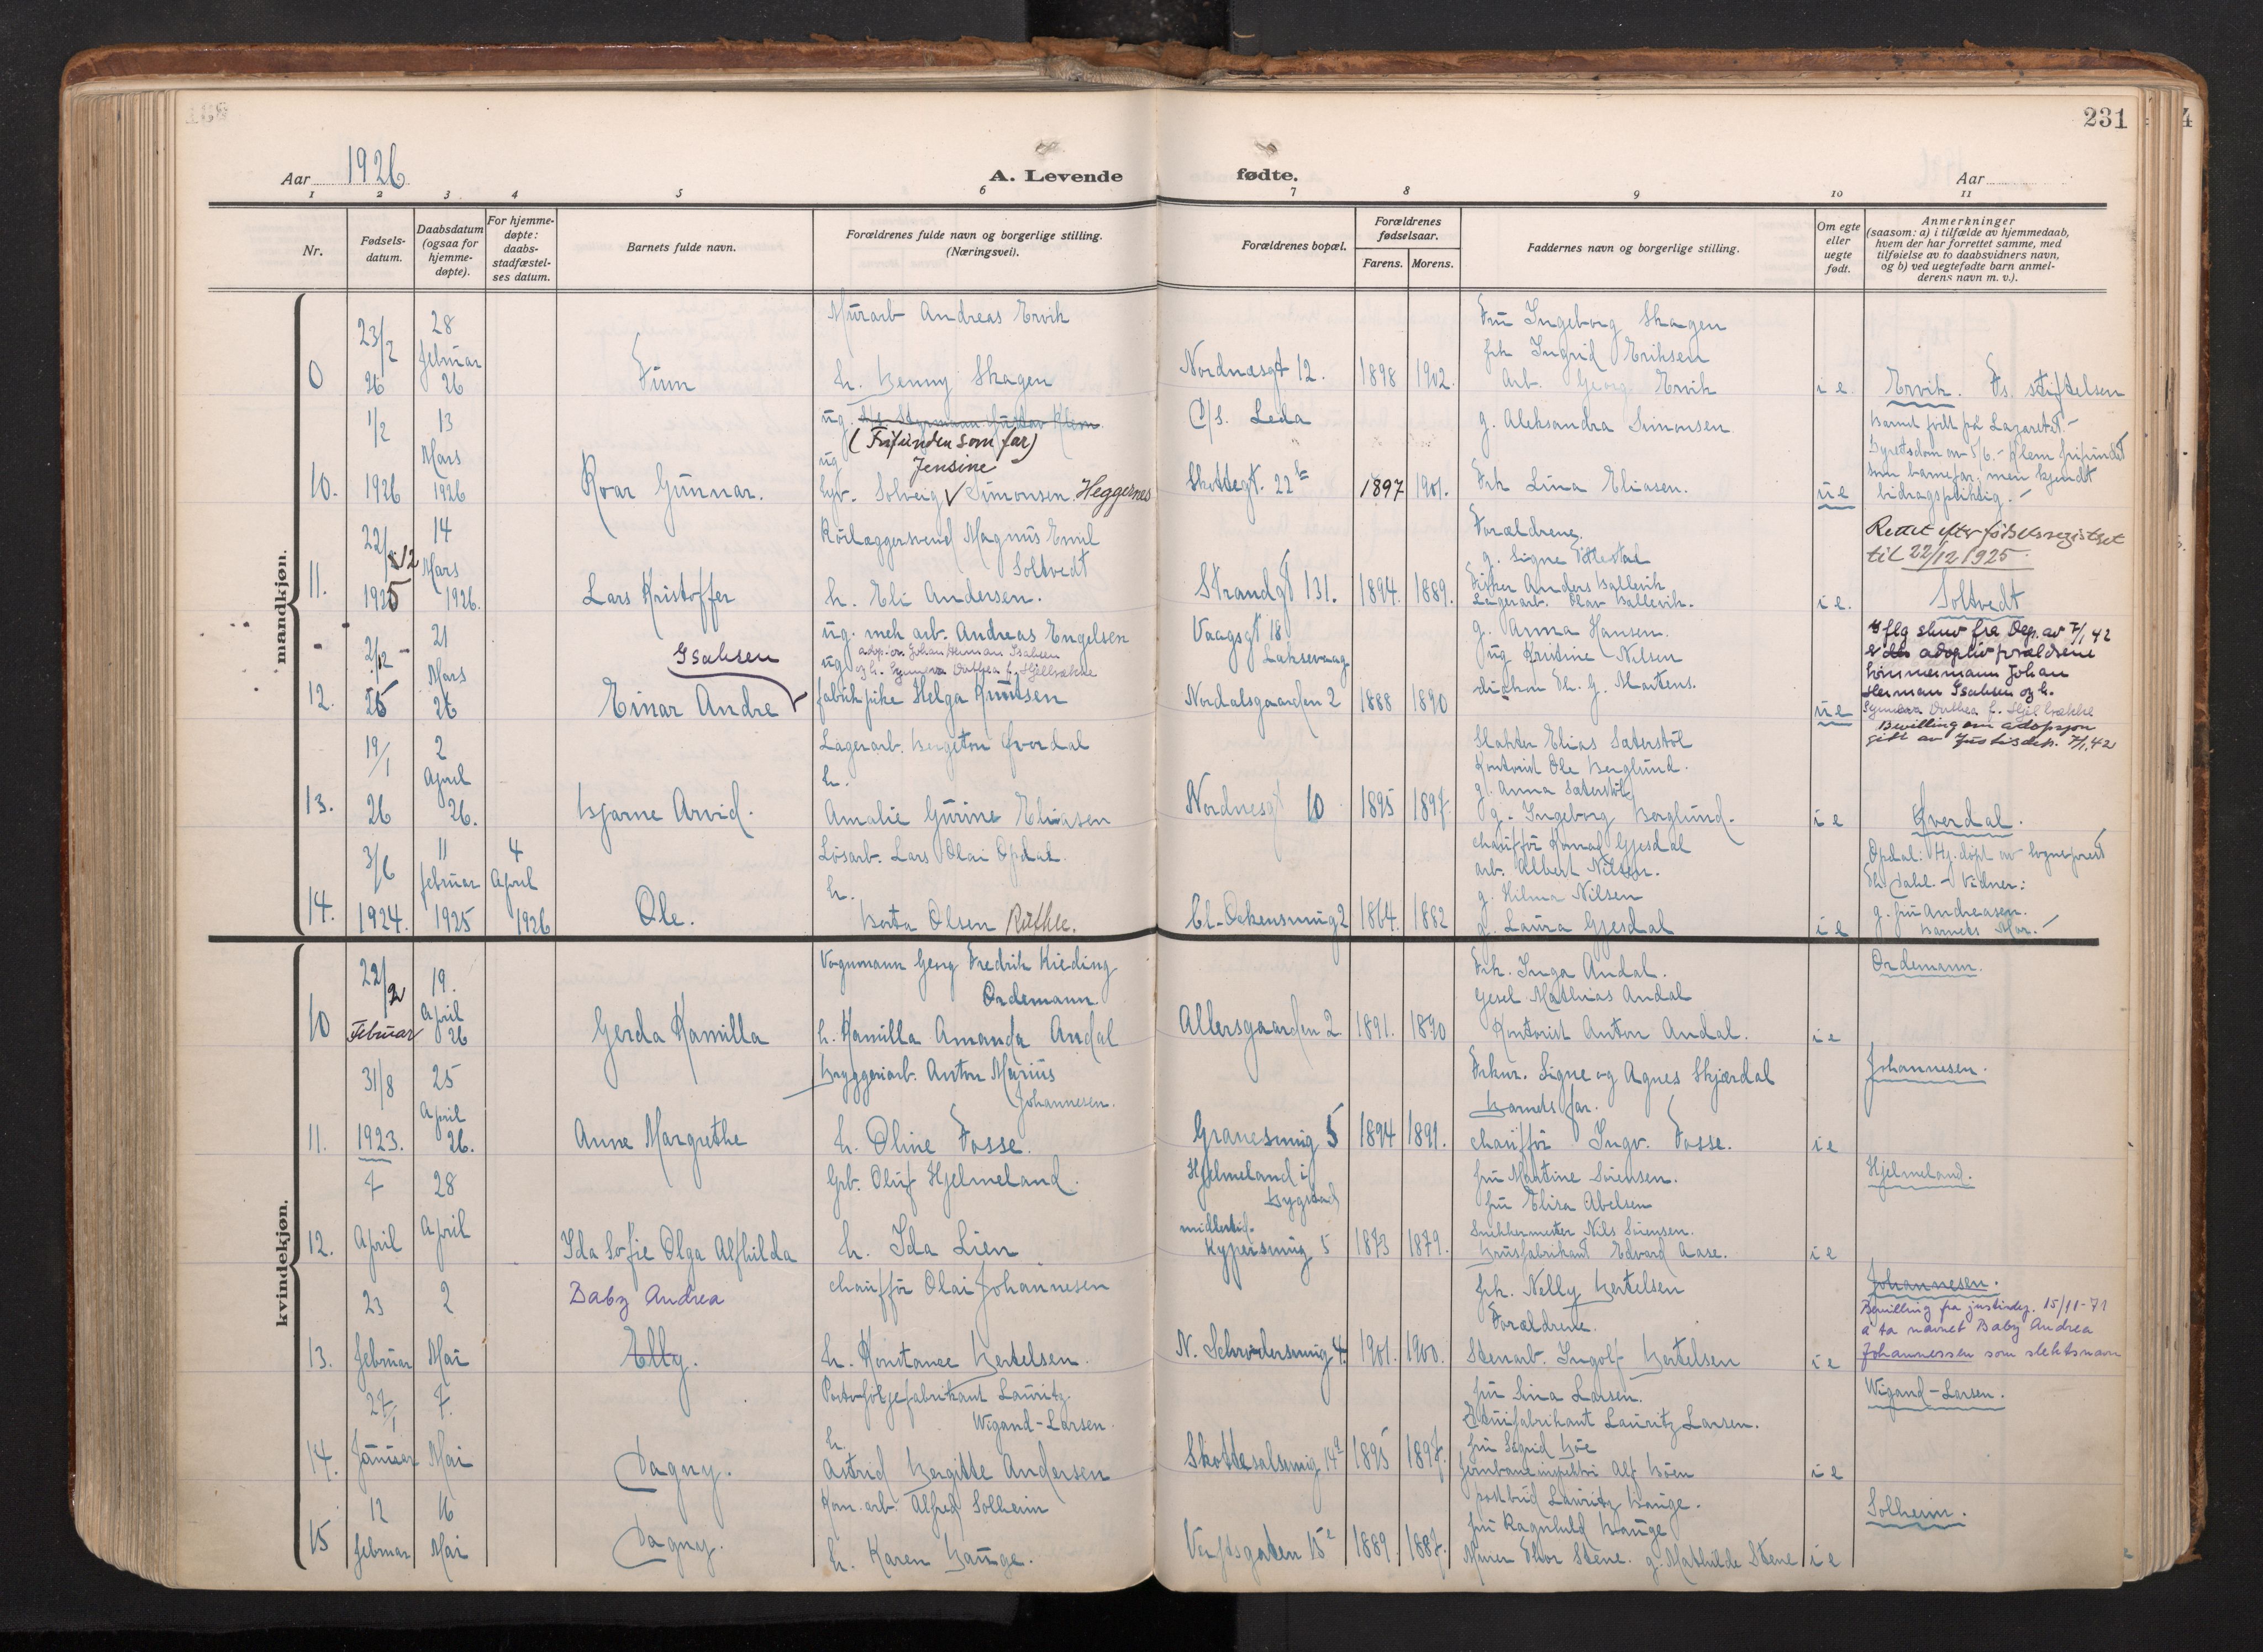 231
Aar 1926
A. Levende fødte.
Aar
1 2 3 4 5 6 7 8 9 10 11
Nr.
Fødsels-
datum.
Daabsdatum
(ogsaa for
hjemme-
døpte).
For hjemme-
døpte:
daabs-
stadfæstel-
ses datum.
Barnets fulde navn.
Forældrenes fulde navn og borgerlige stilling.
(Næringsvei).
Forældrenes bopæl.
Forældrenes
fødselsaar.
Farens. Morens.
Faddernes navn og borgerlige stilling.
Om egte
eller
uegte
født.
Anmerkninger
(saasom: a) i tilfælde av hjemmedaab,
hvem der har forrettet samme, med
tilføielse av to daabsvidners navn,
og b) ved uegtefødte barn anmel-
derens navn m. v.).
mandkjøn.
23/2
26
28
februar
26
Finn
Murarb Andreas Ervik
h. Henny Skagen
Nordnæsgt 12.
1898 1902.
Fru Ingeborg Skagen
frk Ingrid Eriksen
Arb. Georg Ervik
i e
Ervik. Fs. stiftelsen
10.
1/2
1926
13
Mars
1926
Roar Gunnar.
ug. Styrmann Gustav Klem
(Frifunden som far)
ug Jensine
Solveig V Simonsen. Heggernes
D/s. Leda
Skottegt. 22 b
1897 1901.
g. Aleksandra Simonsen
Frk Lina Eliasen.
u e
Barnet født på Lazarettet.-
Byretsdom av 5/6.- Klem frifundet
som barnefar, men kjendt
bidragspliktig.-
11.
22/12
1925
14
Mars
1926.
Lars Kristoffer
Rørlæggersvend Magnus Emil
Soltvedt
h. Eli Andersen.
Strandgt 131.
1894. 1889.
Forældrene.
g. Signe Tittlestad
Fisker Anders Ballevik
Lagerarb. Olav Ballevik.
i e.
Rettet efter fødselsregistret
til 22/12 1925
Soltvedt
12.
2/12
25
21
Mars
26
Isaksen
Einar Andre
ug. mek arb. Andreas Engelsen
adop. av Johan Herman Isaksen
og h. Synneva Dorthea f. Hjellbrekke
ug
fabrikpike Helga Knutsen
Vaagsgt 18
Laksevaag
Nordalsgaarden 2
1888 1890
g. Anna Hansen.
ug Kristine Nilsen
diakon Th. G. Martens.
u e
Iflg skriv fra Dep. av 7/1 42
er adoptivforældrene
tømmermann Johan
Herman Isaksen og h.
Synneva Dorthea f. Hjellbrekke
Bevilling om adopsjon
gitt av Justisdep. 7/1.42
13.
19/1
26
2
April
26.
Bjarne Arvid.
Lagerarb. Bergeton Øverdal
h.
Amalie Gurine Eliasen
Nordnesgt 10
1895 1897.
Slakter Elias Sæterstøl
Kontorist Ole Berglund.
g. Anna Sæterstøl
g. Ingeborg Berglund.
i e
Øverdal.
14.
3/6
1924.
11
februar
1925
4
April
1926
Ole.
Løsarb. Lars Olai Opdal.
h.
Berta Olsen Røthle.
Cl. Ockensmug 2
1864. 1882
chauffør Konrad Gjesdal
arb. Albert Nilsen.
g. Hilma Nilsen
g. Laura Gjesdal
i e
Opdal: Hj. døpt av sogneprest
Th. Dahl.- Vidner:
g. fru Andreasen.
Barnets Mor.-
kvindekjøn.
10
22/2
Februar
19.
April
26
Gerda Kamilla
Vognmann Georg Fredrik Kieding
Ordemann.
h. Kamilla Amanda Andal
Allersgaarden 2.
1891. 1890
Frk. Inga Andal.
Gesel Mathias Andal
Kontorist Anton Andal.
i e
Ordemann.
11.
31/8
1923.
25
April
26.
Anne Margrethe
Bryggeriarb. Anton Marius
Johannesen.
h. Oline Fosse.
Granesmug 5
1894 1891.
Frknr. Signe og Agnes Skjærdal
Barnets far.
chauffør Ingv. Fosse.
i e
Johannesen.
12.
7
April
28
April
Ida Sofie Olga Alfhilda
Grb. Oluf Hjelmeland.
h. Ida Lien
Hjelmeland i
Bygstad
midlertid.
Kypersmug 5
1873 1879.
fru Martine Sørensen.
fru Elisa Abelsen
Snekkermester Nils Sørensen.
Brusfabrikant Edvard Aase.
i e
Hjelmeland.
13.
23
februar
2
Mai
Baby Andrea
Elly.
chauffør Olai Johannesen
h. Konstance Bertelsen.
N. Schrødersmug 4.
1901. 1900.
frk. Nelly Bertelsen
Forældrene.
Stenarb. Ingolf Bertelsen
i e
Johannesen.
Bevilling fra justisdep. 15/11-71
å ta navnet Baby Andrea
Johannessen som slektsnavn
14.
27/1
Januar
7.
Mai
Dagny.
Porteføljefabrikant Lauritz
Wigand-Larsen.
h.
Astrid Bergitte Andersen
Skottesalsmug 14 a
1895 1897.
fru Lina Larsen.
Etuifabrikant Lauritz Larsen.
fru Sigrid Bøe
jernbaneinspektør Alf Bøen
i e
Wigand-Larsen.
15
12
februar
16
Mai
Dagny.
Kom. arb. Alfred Solheim
h. Karen Hauge.
Verftsgaten 15 c
1889. 1887.
postbud Lauritz Hauge.
fru Ragnhild Hauge
Murer Thor Stene. g. Mathilde Stene
i e
Solheim.